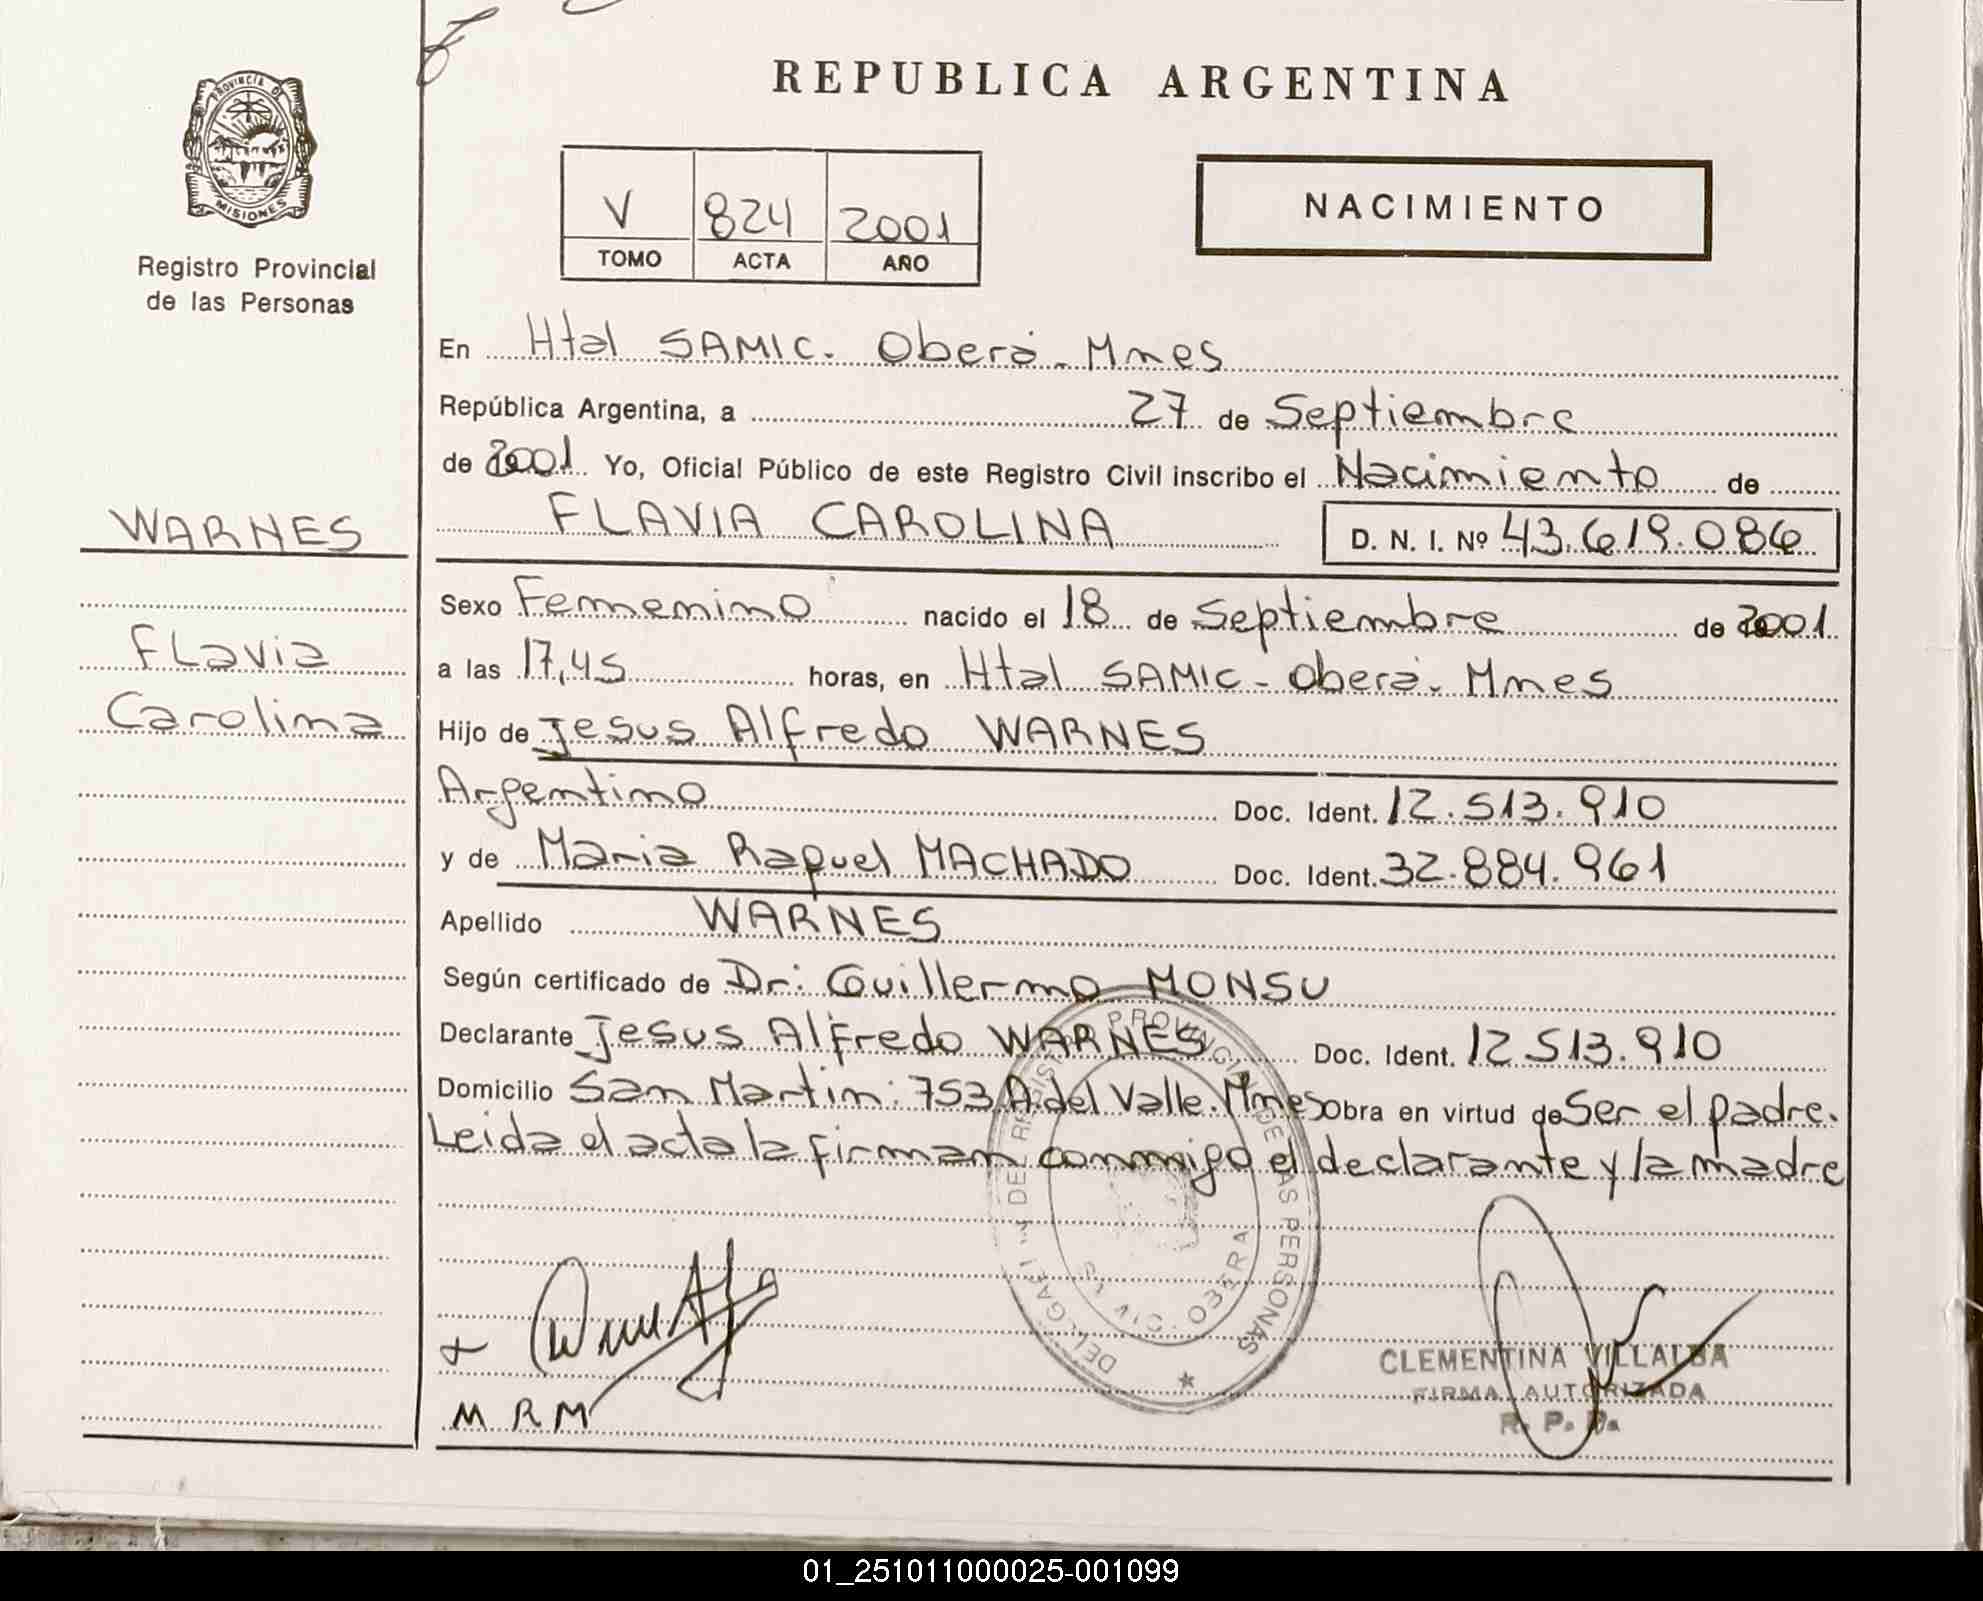 REPUBLICA ARGENTINA
PROVINCIA DE
MISIONES
Registro Provincial
de las Personas
V 824 2001
TOMO ACTA AÑO
NACIMIENTO
En Htal SAMIC. Oberá - Mnes
República Argentina, a 27 de Septiembre
de 2001 Yo, Oficial Público de este Registro Civil inscribo el Nacimiento de
FLAVIA CAROLINA D. N. I. Nº 43.619.086
WARNES
Flavia
Carolina
Sexo Femenino nacido el 18 de Septiembre de 2001
a las 17,45 horas, en Htal SAMIC - Oberá. Mnes
Hijo de Jesus Alfredo WARNES
Argentino Doc. Ident. 12.513.910
y de Maria Raquel MACHADO Doc. Ident. 32.884.961
Apellido WARNES
Según certificado de Dr: Guillermo MONSU
Declarante Jesus Alfredo WARNES Doc. Ident. 12.513.910
Domicilio San Martin: 753 A. del Valle. Mnes obra en virtud de Ser el padre.
Leida el acta la firman conmigo el declarante y la madre
PROVINCIAL DE LAS PERSONAS
OBERA
M R M
CLEMENTINA VILLALBA
FIRMA AUTORIZADA
R. P. P.
01_251011000025-001099